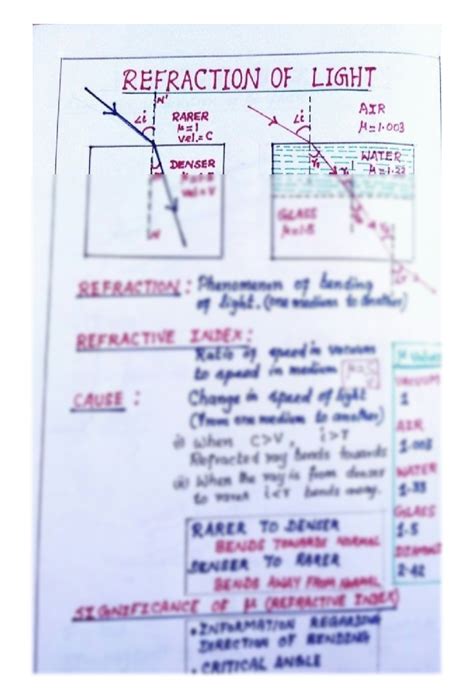 REFRACTION OF LIGHT
N'
∠i
RARER
μ=1
vel.=C
DENSER
μ=1.5
vel=V
N
∠i
AIR
μ=1.003
WATER
GLASS
μ=1.5
REFRACTION : Phenomenon of bending
of light. (one medium to another)
REFRACTIVE INDEX :
Ratio of speed in vacuum
to speed in medium μ=C/V
CAUSE : Change in speed of light
(From one medium to another)
(i) When C>V, i>r
Refracted ray bends towards
(ii) When the ray is from denser
to rarer i<r bends away.
μ Values
VACUUM
1
AIR
1.003
WATER
1.33
GLASS
1.5
DIAMOND
2.42
RARER TO DENSER
BENDS TOWARDS NORMAL
DENSER TO RARER
BENDS AWAY FROM NORMAL
SIGNIFICANCE OF μ (REFRACTIVE INDEX)
• INFORMATION REGARDING
DIRECTION OF BENDING
• CRITICAL ANGLE